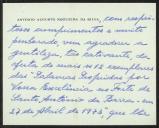 ANTONIO AUGUSTO NOGUEIRA DA SILVA, com respei-
tosos cumprimentos e muito
penhorado, vem agradecer a
gentileza, tão cativante, da
oferta de mais 15 exemplares
das "Palavras Proferidas por
Vossa Excelência no Forte de
Santo António da Barra - em
23 de Abril de 1970, que lhe